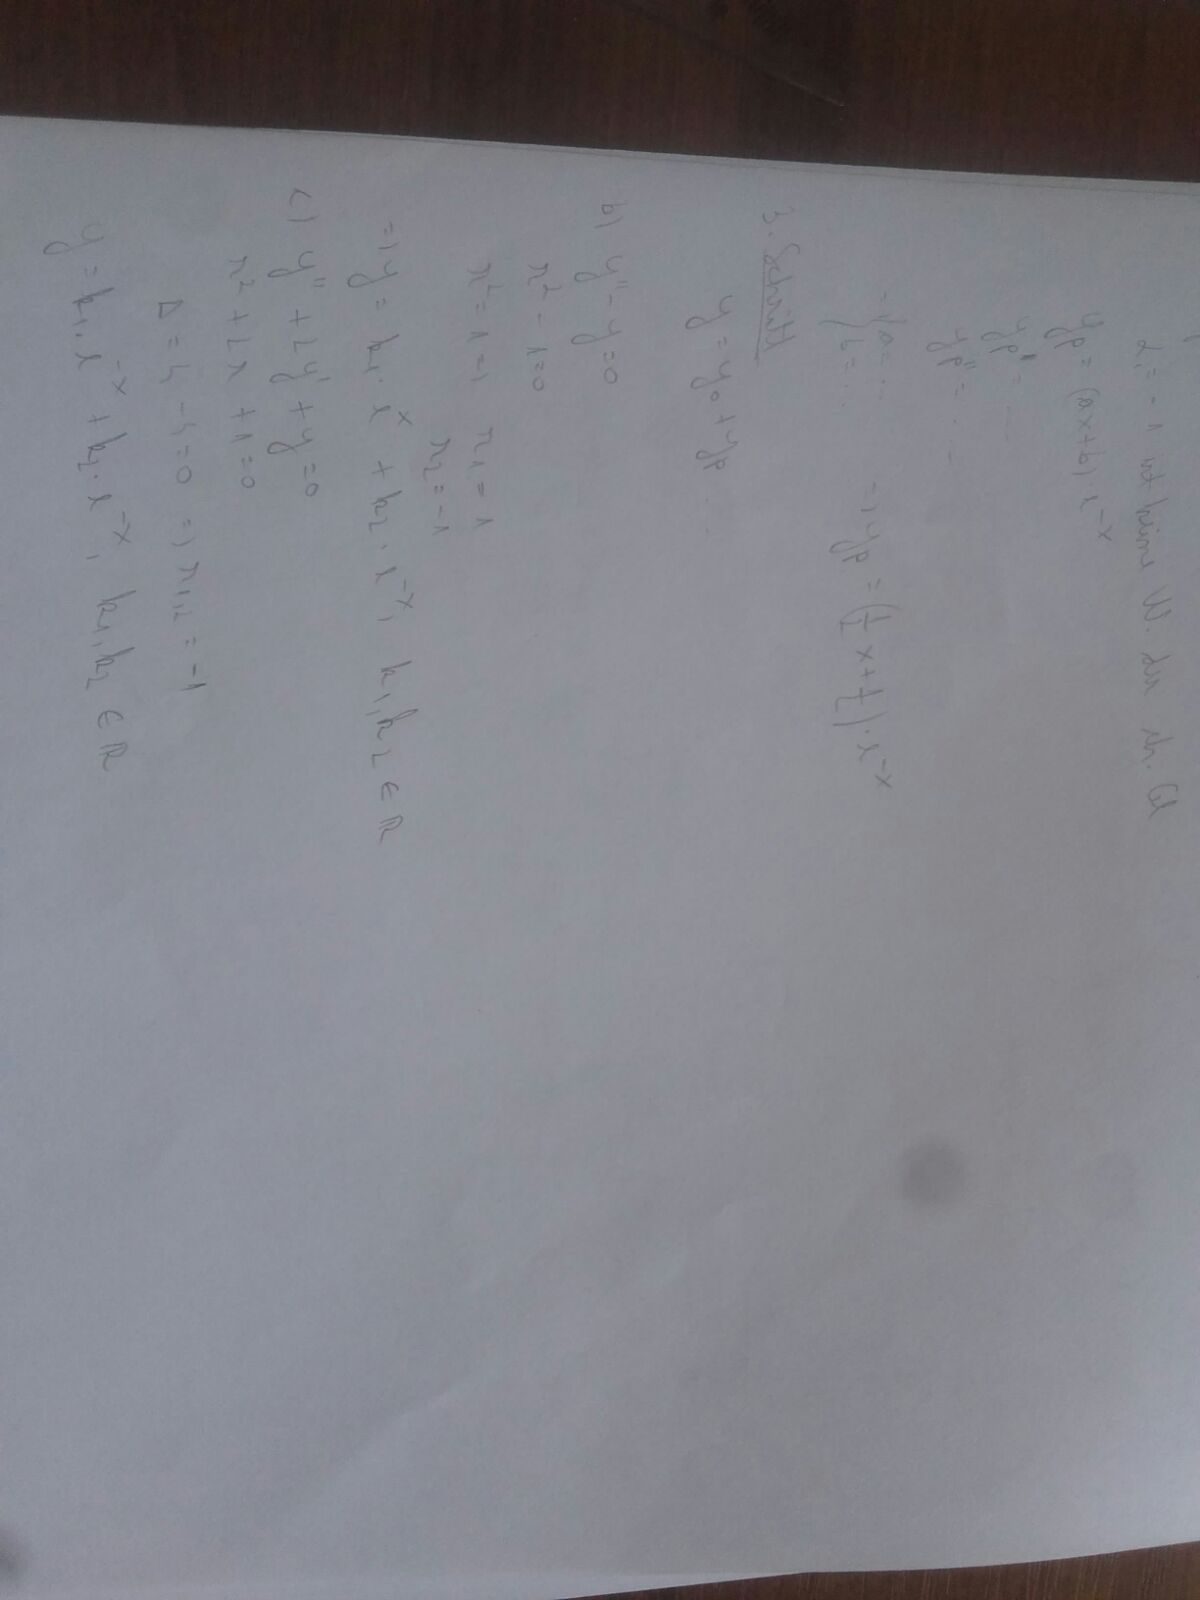 α₁ = -1 ist keine W. der ch. Gl
yp = (ax+b)·e^-x
yp' = ....
yp'' = ....
=> { a = ...
{ b = ... => yp = (1/2 x + 1/2)·e^-x
3. Schritt
y = y₀ + yp ...
b) y'' - y = 0
r² - 1 = 0
r² = 1 => r₁ = 1
r₂ = -1
=> y = k₁·e^x + k₂·e^-x, k₁,k₂ ∈ ℝ
c) y'' + 2y' + y = 0
r² + 2r + 1 = 0
Δ = 4 - 4 = 0 => r₁,₂ = -1
y = k₁·e^-x + k₂·e^-x, k₁,k₂ ∈ ℝ